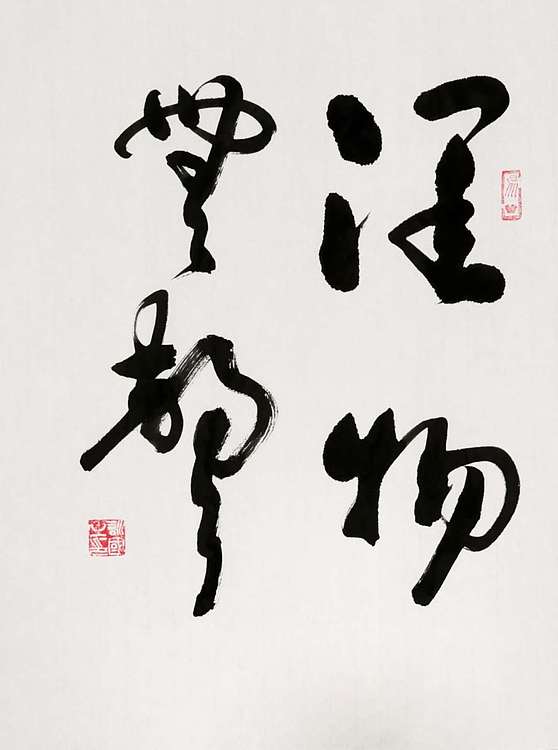 润物
無聲